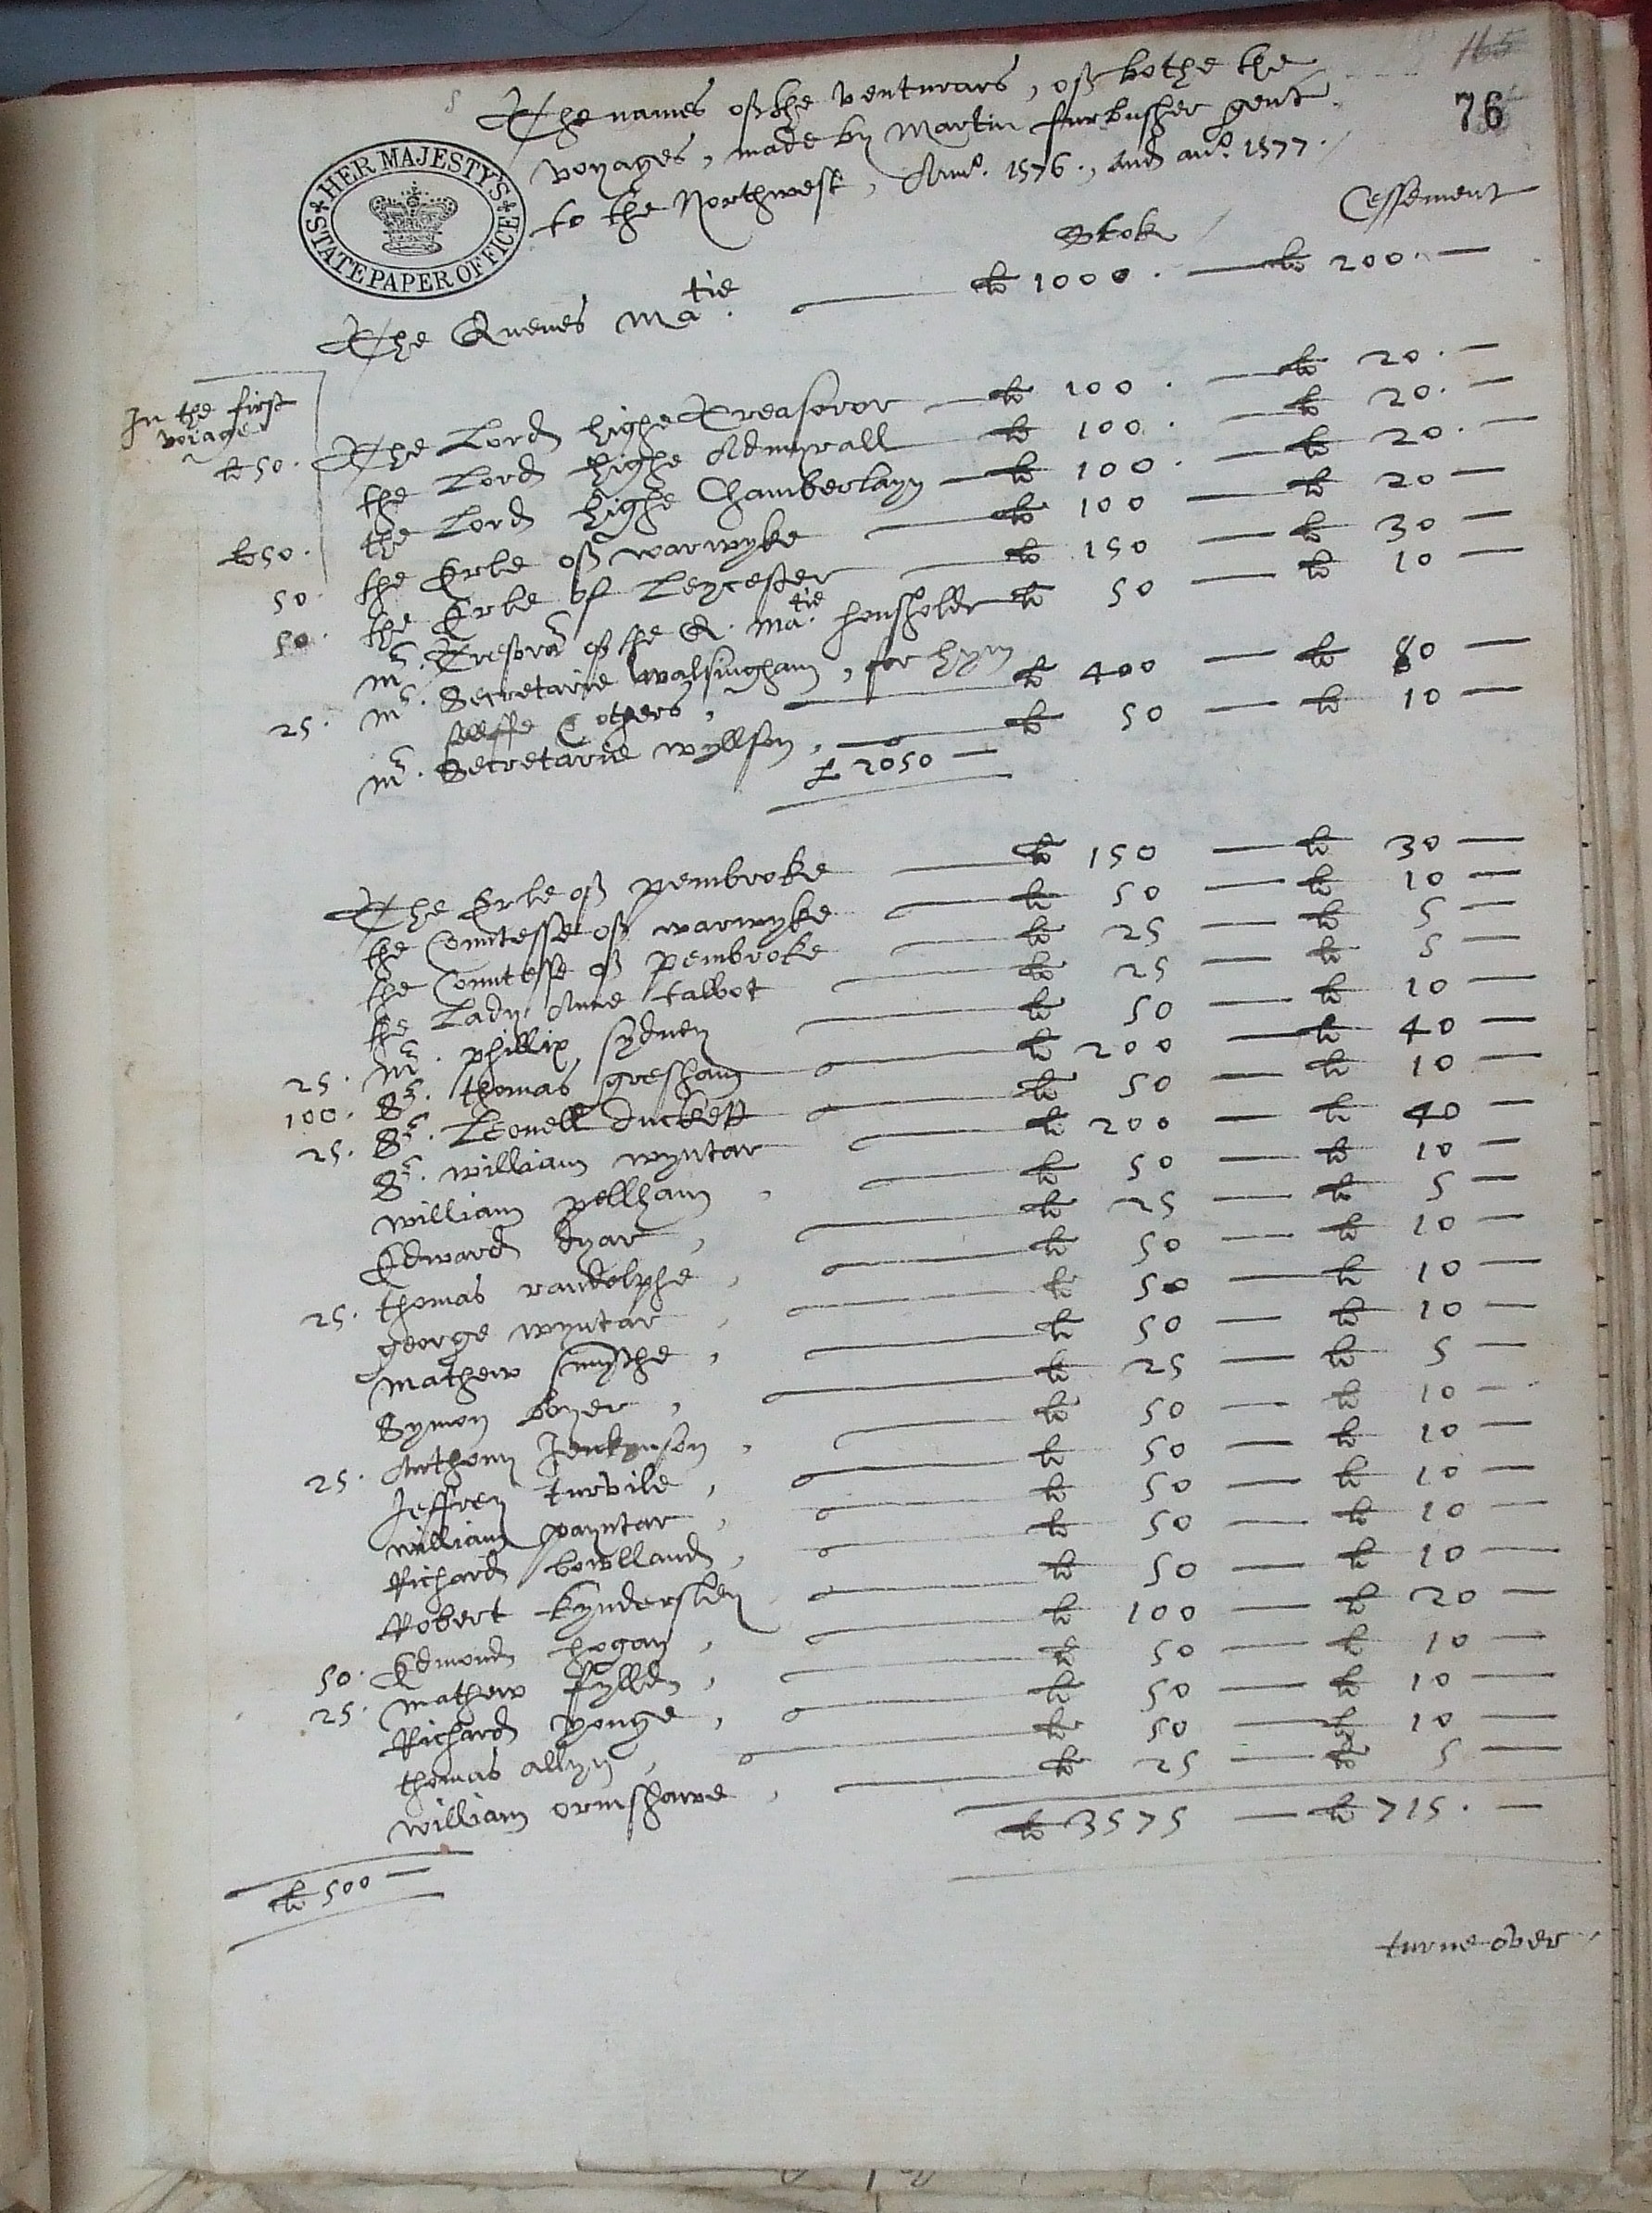 165
76
The names off the venturars, off bothe the
voyages, made by Martin furbusher gent.
to the Northwest, Anno. 1576., and ano. 1577.
HER MAJESTY'S STATE PAPER OFFICE
Stok Cessement
The Quenes Matie. li 1000. li 200.
In the first
voiage
li 50. The Lord highe Treasoror li 100. li 20.
the Lord highe Admyrall li 100. li 20.
the Lord highe Chamberlayn li 100. li 20.
li 50. the Erle off warwyke li 100 li 20
50. the Erle of Leycester li 150 li 30
50. mr. Tresorer of the Q. Matie. housholde li 50 li 10
25. mr. Secretarie Walsingham, for hym
sellffe & others, li 400 li 80
mr. Secretarie wyllson, li 50 li 10
£ 2050
The Erle off pembroke li 150 li 30
the Countesse off warwyke li 50 li 10
the Countesse off pembroke li 25 li 5
the Lady Anne talbot li 25 li 5
25. mr. phillip sydney li 50 li 10
100. Sr. thomas gresham li 200 li 40
25. Sr. Leonell duckett li 50 li 10
Sr. william wyntar li 200 li 40
william pellham, li 50 li 10
Edward dyar, li 25 li 5
25. thomas randolphe, li 50 li 10
george wyntar, li 50 li 10
mathew smythe, li 50 li 10
Symon boyer, li 25 li 5
25. Anthony Jenkynson, li 50 li 10
Jeffrey turvile, li 50 li 10
william payntar, li 50 li 10
Richard bowlland, li 50 li 10
Robert kyndersley li 50 li 10
50. Edmond hogan, li 100 li 20
25. mathew fyllde, li 50 li 10
Richard yonge, li 50 li 10
thomas allyn, li 50 li 10
william ormshawe, li 25 li 5
li 3575 li 715.
li 500
turne over